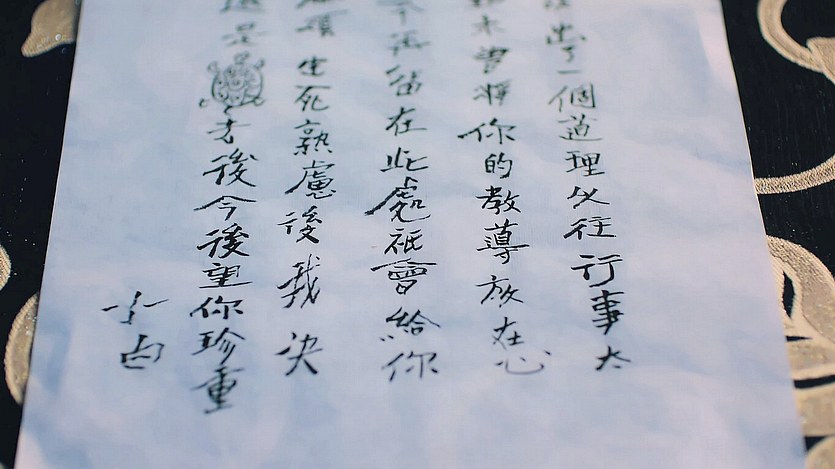 出了一個道理以往行事太
未曾將你的教導放在心
不再留在此處祇會給你
煩生死熟慮後我決
還是才後今後望你珍重
小白